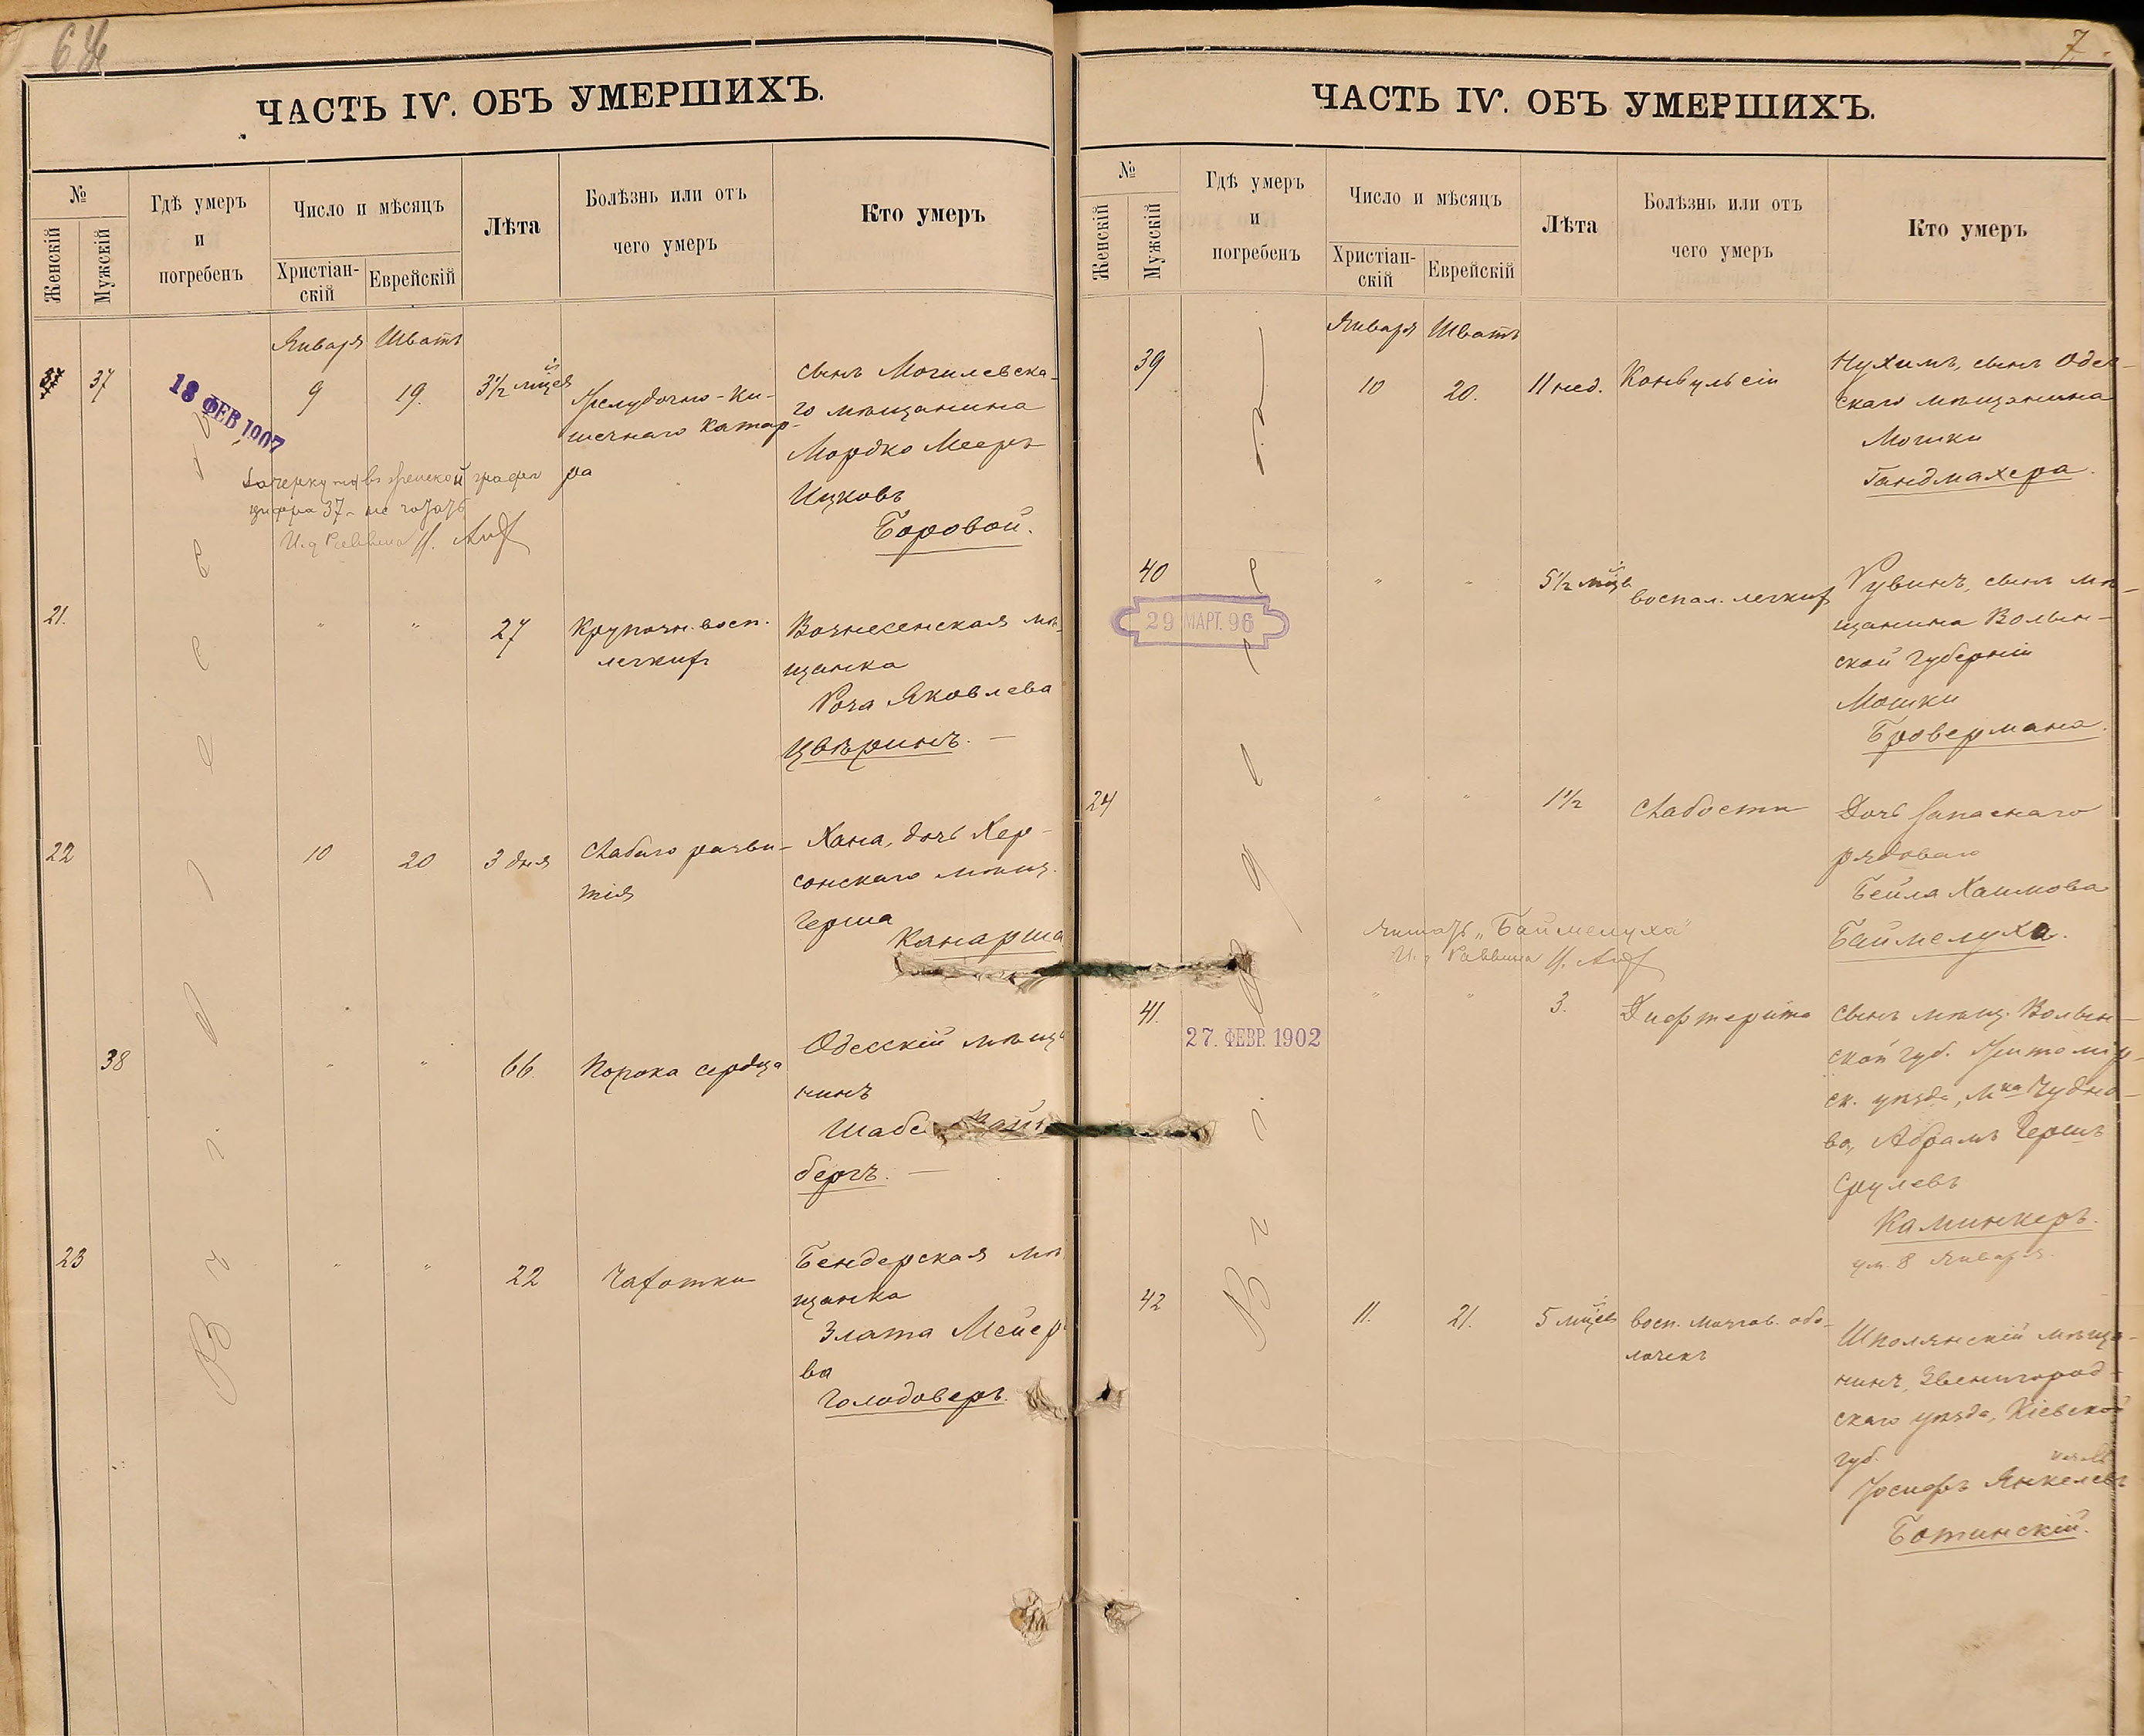 ЧАСТЬ IV. ОБЪ УМЕРШИХЪ.
№
Женскій
Мужскій
Гдѣ умеръ
и
погребенъ
Число и мѣсяцъ
Христіан-
скій
Еврейскій
Лѣта
Болѣзнь или отъ
чего умеръ
Кто умеръ
Января Шватъ
37 37
18 ФЕВ 1907
9 19. 3½ мцсѣ
Желудочно-Ки-
шечнаго Катар-
ра
сынъ Могилевска-
го мѣщанина
Мордко Мееръ
Ицковъ
Боровой.
цифра 37 - не читать
И. д. Раввина
21. " " 27
Крупозн. восп.
легкихъ
Вознесенская мѣ-
щанка
Роза Яковлева
Цвѣринъ. —
22 10 20 3 дня
Слабаго разви-
тія
Хана, дочь Хер-
сонскаго мѣщ.
Герша
Канарша
38 " " 66
Порока сердца
Одесскій мѣща
нинъ
Шабс
бергъ. —
23 " " 22 Чахотки
Бендерская мѣ
щанка
Злата Мейер
ва
Голодоверъ.
Въ Одессѣ
7.
ЧАСТЬ IV. ОБЪ УМЕРШИХЪ.
№
Женскій
Мужскій
Гдѣ умеръ
и
погребенъ
Число и мѣсяцъ
Христіан-
скій
Еврейскій
Лѣта
Болѣзнь или отъ
чего умеръ
Кто умеръ
Января Шватъ
39 10 20. 11 нед. Конвульсіи
Нухимъ, сынъ Одес-
скаго мѣщанина
Мошки
Гандмахера.
40 " " 5½ мцсв воспал. легкихъ
29 МАРТ. 96
Рувинъ, сынъ мѣ-
щанина Волын-
ской губерніи
Мошки
Бровермана.
24 " " 1½ Слабости
Дочь запаснаго
рядоваго
Бейла Хаимова
Баймелуха.
Читать "Баймелуха"
И. д. Раввина
41. " " 3. Дифтерита
27. ФЕВР. 1902
сынъ мѣщ. Волын-
ской губ. Житомір-
ск. уѣзда, Мка Чудно-
ва, Абрамъ Гершъ
Срулевъ
Каминкеръ.
ум. 8 Января.
42 11. 21. 5 мцсѣ восп. мозгов. обо-
лочекъ
Шполянскій мѣща-
нинъ, Звенигород-
скаго уѣзда, Кіевской
губ.
Іосифъ Янкелевъ
Ботинскій.
Въ Одессѣ